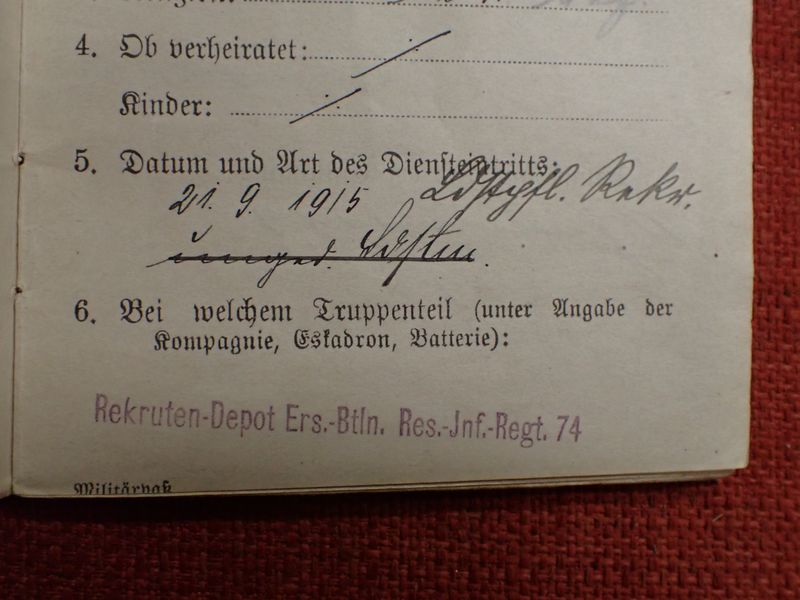 4. Ob verheiratet:
Kinder:
5. Datum und Art des Diensteintritts:
21. 9. 1915 Ldstpfl. Rekr.
unged. Ldstm.
6. Bei welchem Truppenteil (unter Angabe der
Kompagnie, Eskadron, Batterie):
Rekruten-Depot Ers.-Btln. Res.-Jnf.-Regt. 74
Militärpaß